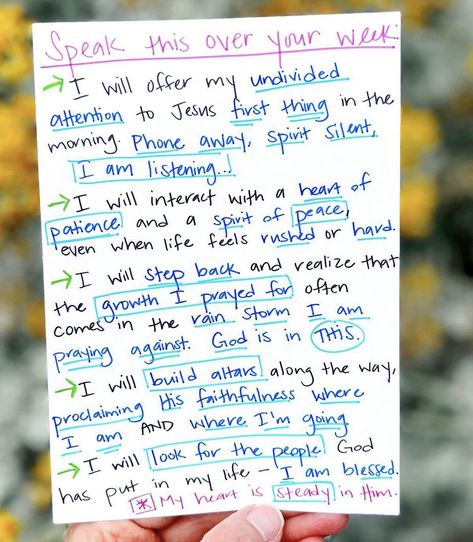 Speak this over your week:
→ I will offer my undivided
attention to Jesus first thing in the
morning. Phone away, spirit silent,
I am listening...
→ I will interact with a heart of
patience and a spirit of peace,
even when life feels rushed or hard.
→ I will step back and realize that
the growth I prayed for often
comes in the rain storm I am
praying against. God is in THIS.
→ I will build altars along the way,
proclaiming His faithfulness where
I am AND where I'm going
→ I will look for the people God
has put in my life – I am blessed.
* My heart is steady in Him.